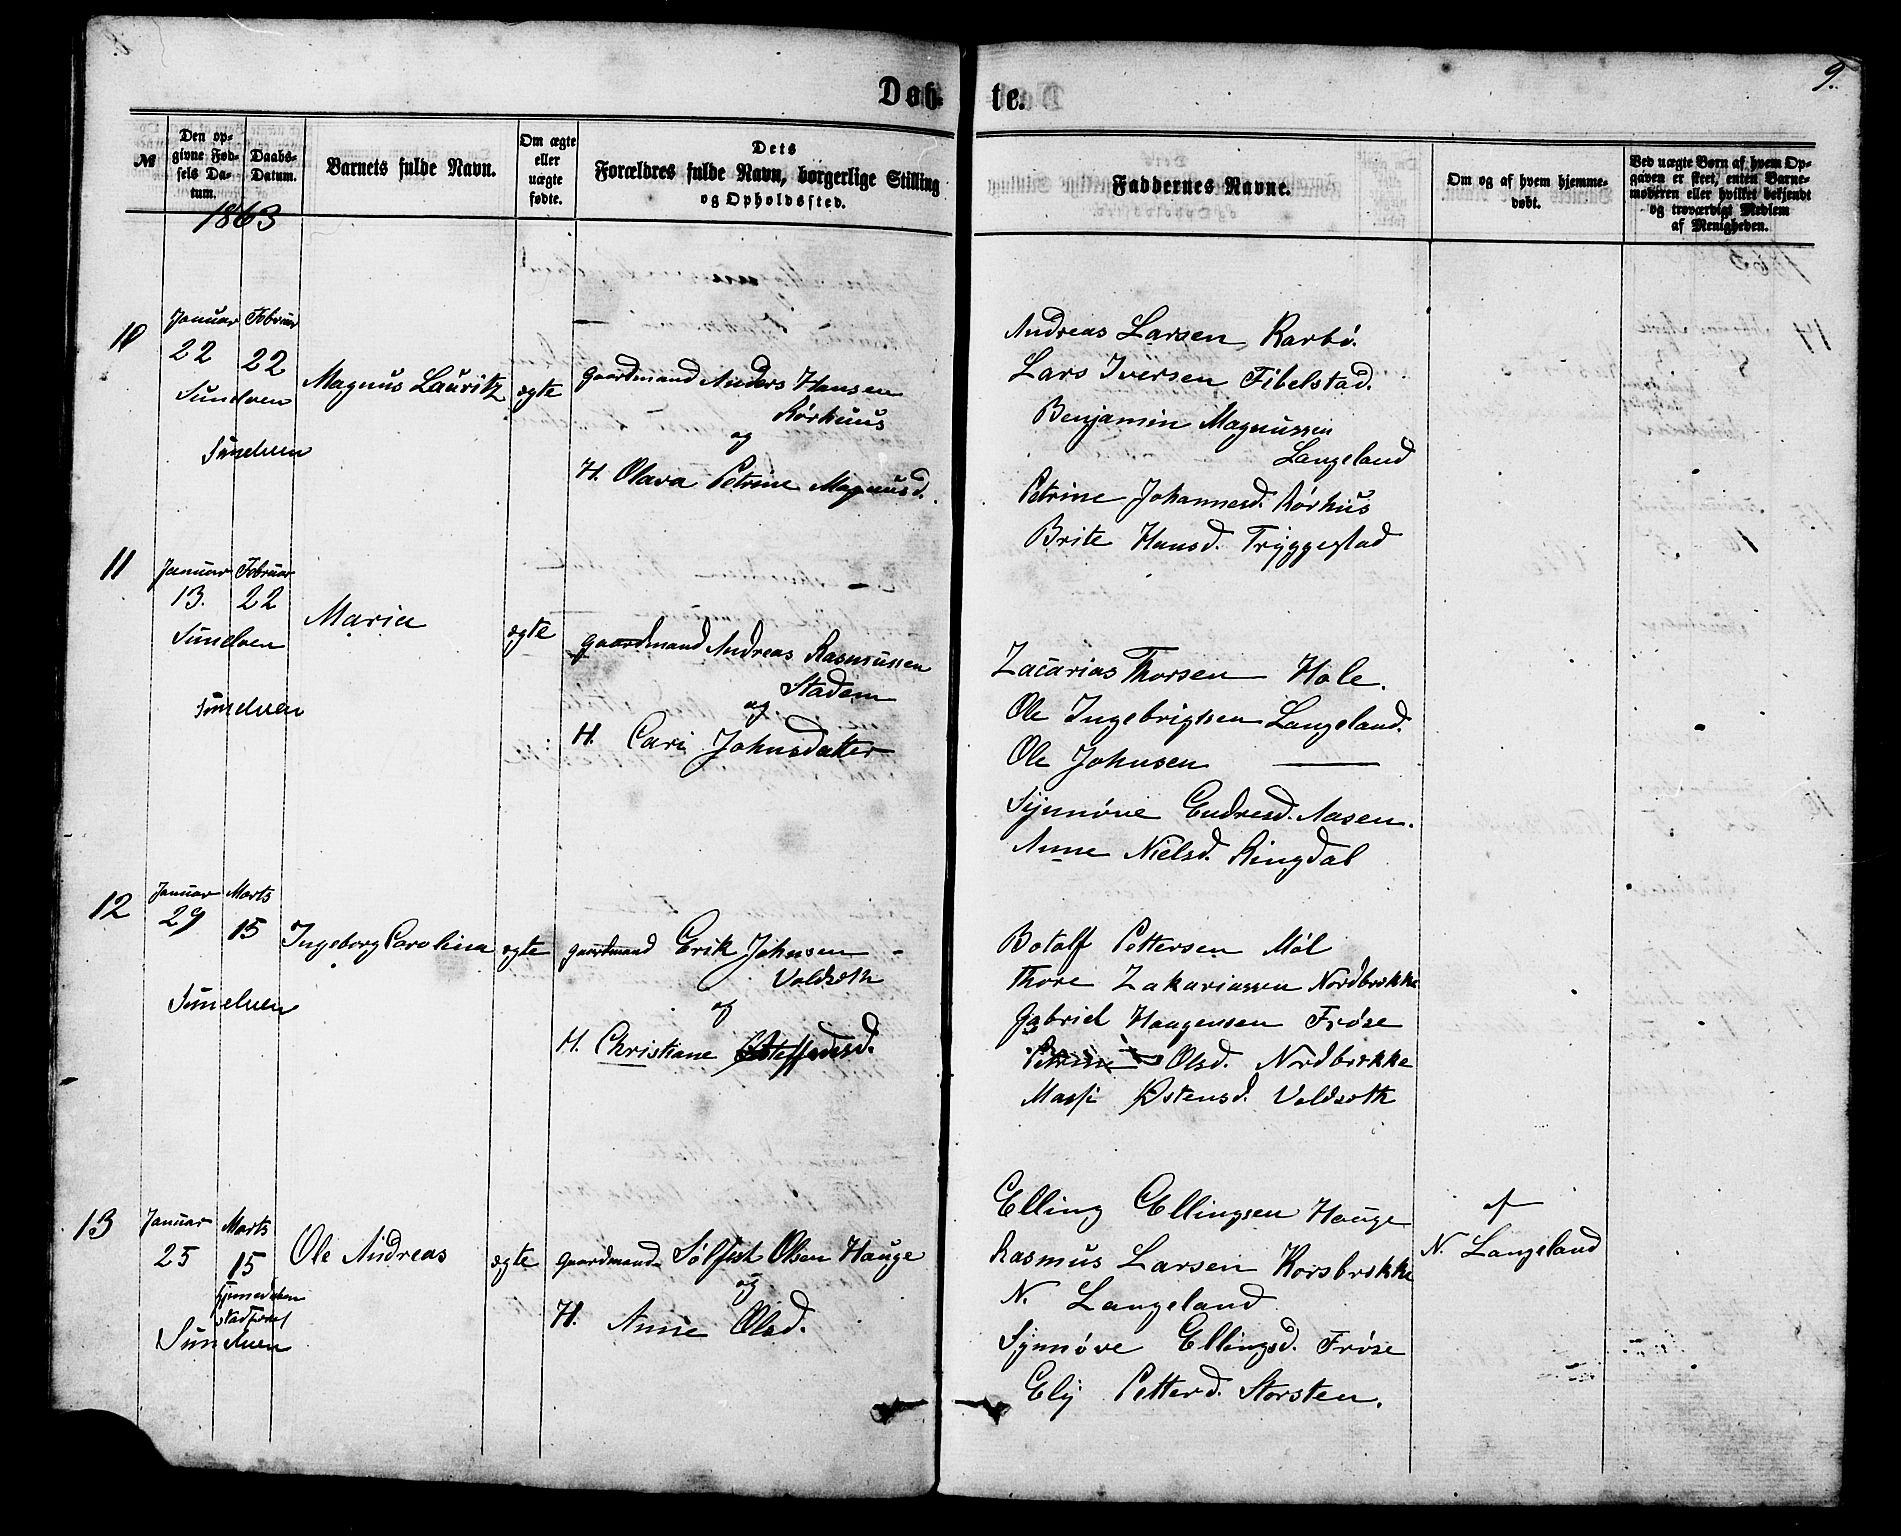 9.
Døbte.
№
Den opgivne Fødsels Datum.
Daabs-Datum.
Barnets fulde Navn.
Om ægte eller uægte fødte.
Dets Forældres fulde Navn, borgerlige Stilling og Opholdssted.
Faddernes Navne.
Om og af hvem hjemmedøbt.
Ved uægte Børn af hvem Opgaven er skeet, enten Barnemoderen eller hvilket bekjendt og troværdigt Medlem af Menigheden.
1863
10
Januar Februar
22 22
Sunelven
Sunelven
Magnus Lauritz
ægte
gaardmand Anders Hansen
Rørhuus
og
H. Olava Petrine Magnusd.
Andreas Larsen Rarbø.
Lars Iversen Fibelstad.
Benjamin Magnussen
Langeland
Petrine Johannesd. Rørhus
Brite Hansd. Tryggestad
11
Januar Februar
13. 22
Sunelven
Sunelven
Maria
ægte
gaardmand Andreas Rasmussen
Stadem
og
H. Cari Johnsdatter
Zacarias Thorsen Hole.
Ole Ingebrigtsen Langeland.
Ole Johnsen ———
Synnøve Endresd. Aasen.
Anne Nielsd. Ringdal
12
Januar Marts
29 15
Sunelven
Ingeborg Carolina
ægte
gaardmand Erik Johnsen
Voldsæth
og
H. Christiane Steffensd.
Botolf Pettersen Møl
Thore Zakariassen Nordbrække
Gabriel Haagensen Frøse
Petrine Olsd. Nordbrække
Massi Østensd. Voldsæth
13
Januar Marts
25 15
Sunelven
Ole Andreas
ægte
gaardmand Sølfest Olsen Hauge
og
H. Anne Olsd.
Elling Ellingsen Hauge
Rasmus Larsen Korsbrække
N. Langeland
Synnøve Ellingsd. Frøse
Ely Petterd. Storsten.
af
N. Langeland